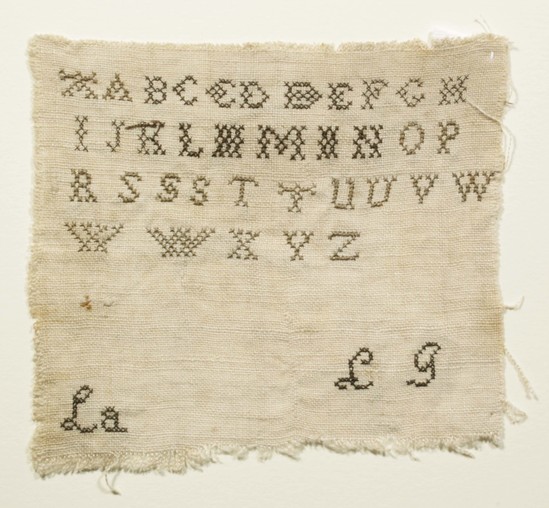 A A B C C D D E F G H
I J K L M M N N O P
R S S S T T U U V W
W W X Y Z
L G
La